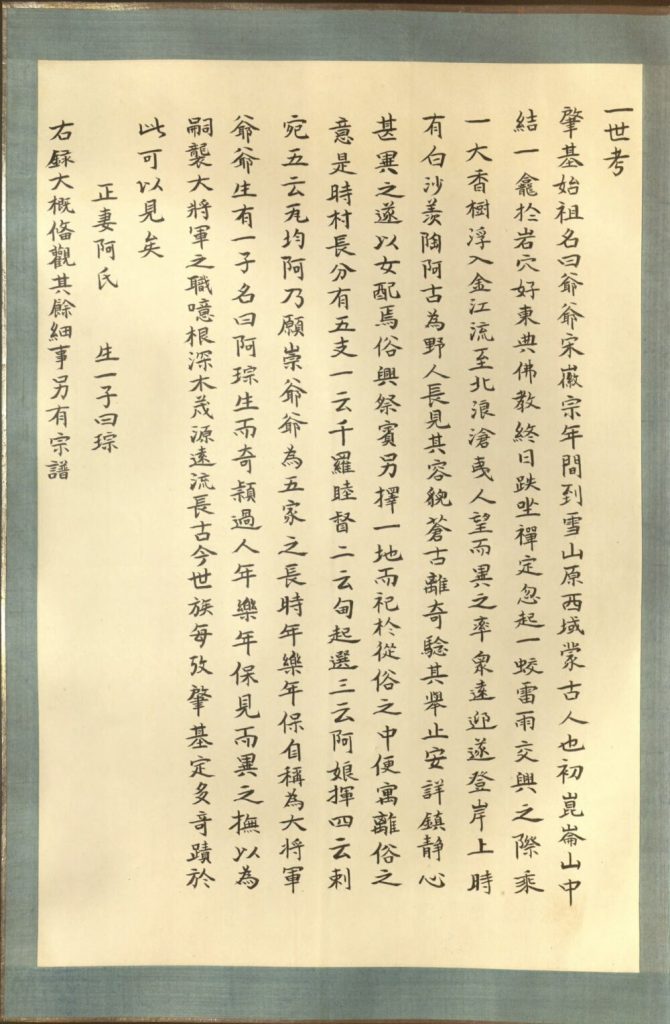 一世考
肇基始祖名曰爺爺宋徽宗年間到雪山原西域蒙古人也初崑崙山中
結一龕於岩穴好東典佛教終日趺坐禪定忽起一蛟雷雨交興之際乘
一大香樹浮入金江流至北浪滄夷人望而異之率眾遠迎遂登岸上時
有白沙羨陶阿古為野人長見其容貌蒼古離奇驗其舉止安詳鎮静心
甚異之遂以女配焉俗興祭賓另擇一地而祀於從俗之中便寓離俗之
意是時村長分有五支一云千羅睦督二云甸起選三云阿娘揮四云剌
宛五云瓦均阿乃願崇爺爺為五家之長時年樂年保自稱為大將軍
爺爺生有一子名曰阿琮生而奇穎過人年樂年保見而異之撫以為
嗣襲大將軍之職噫根深木茂源遠流長古今世族每攷肇基定多奇蹟於
此可以見矣
正妻阿氏 生一子曰琮
右録大概俻觀其餘細事另有宗譜